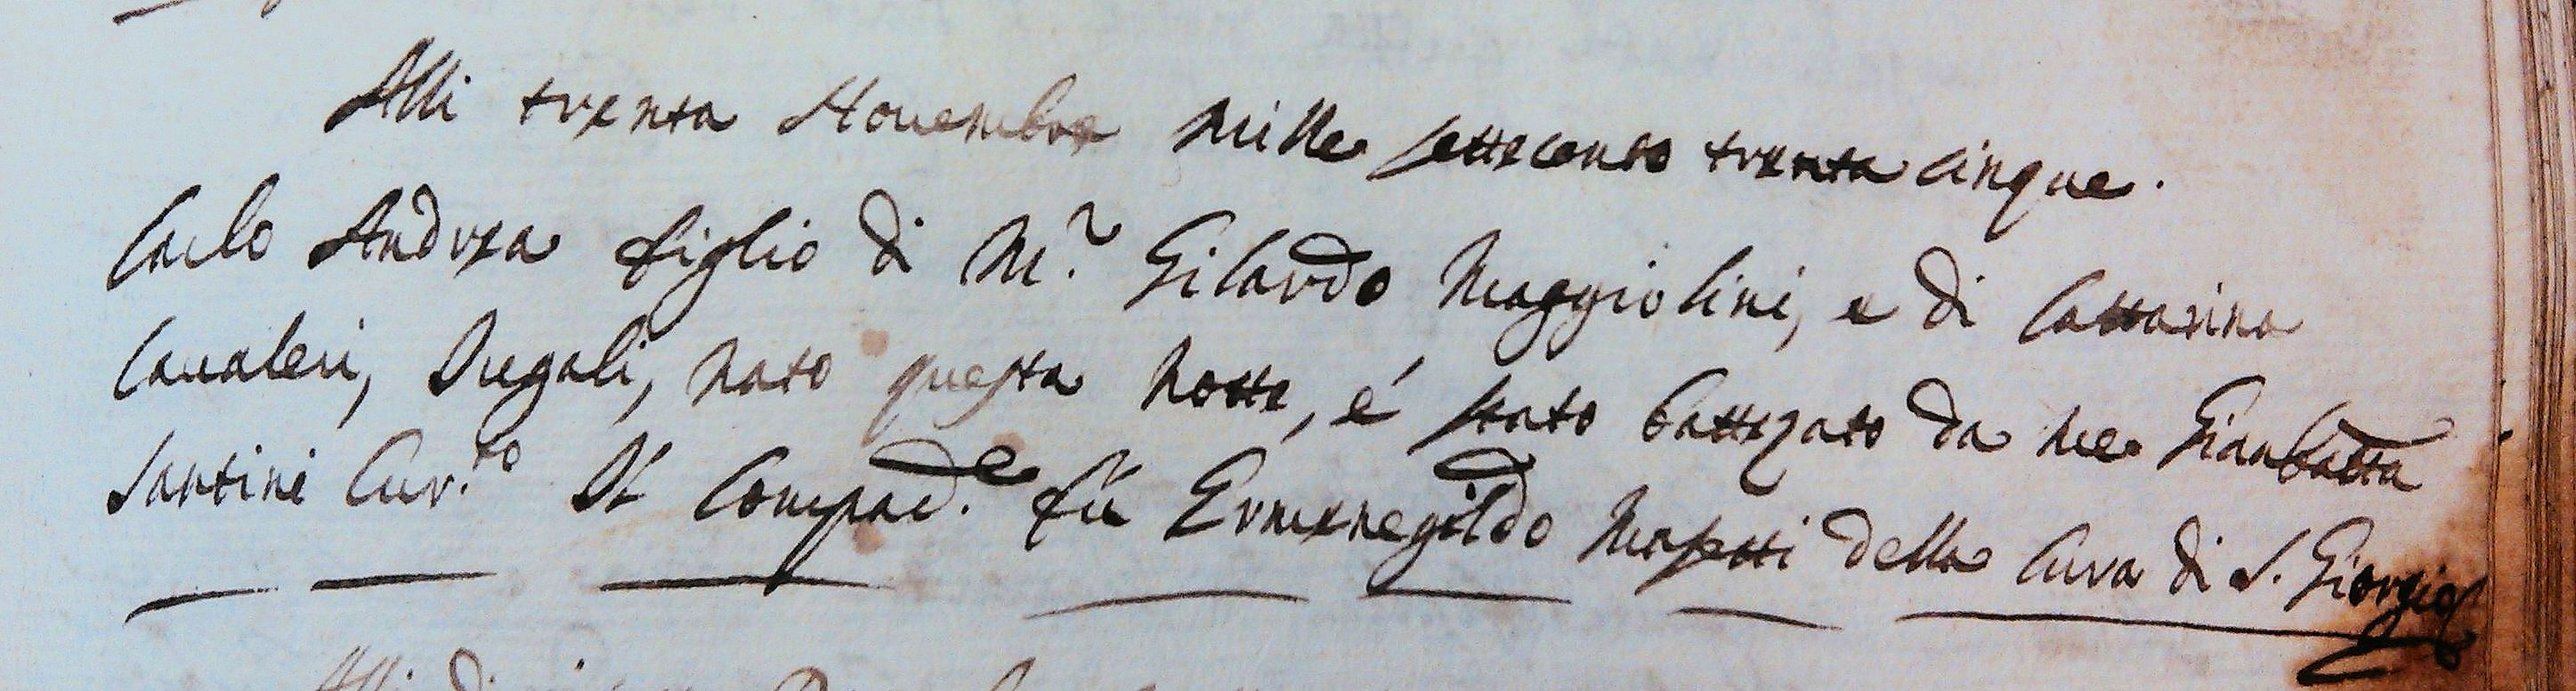 Alli trenta Nouembre mille settecento trenta cinque.
Carlo Andrea figlio di M.r Gilardo Maggiolini, e di Cattarina
Caualeri, Iugali, nato questa notte, é stato battezato da me Gianbatta
Santini Cur.to Il Compad.e fù Ermenegildo Masetti della Cura di S. Giorgio
Alli